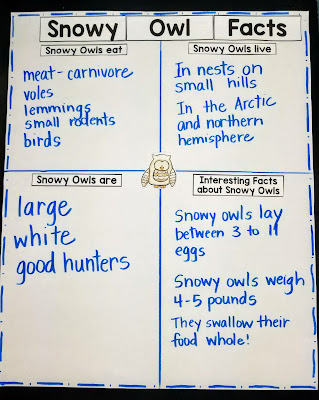 Snowy Owl Facts
Snowy Owls eat
meat-carnivore
voles
lemmings
small rodents
birds
Snowy Owls live
In nests on
small hills
In the Arctic
and northern
hemisphere
Snowy Owls are
large
white
good hunters
Interesting Facts
about Snowy Owls
Snowy owls lay
between 3 to 11
eggs
Snowy owls weigh
4-5 pounds
They swallow their
food whole!